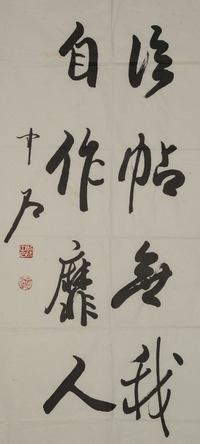 臨帖無我
自作靡人
中石